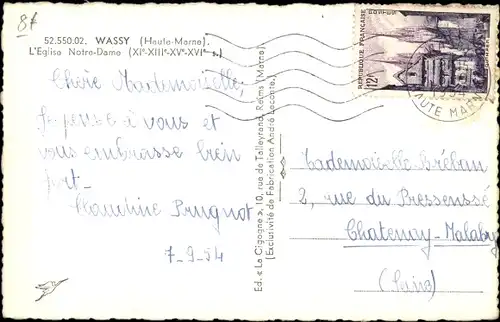 8f
52.550.02. WASSY (Haute-Marne).
L'Eglise Notre-Dame (XIe-XIIIe-XVe-XVIe s.)
Chère Mademoiselle,
Je pense à vous et
vous embrasse bien
fort-
Claudine Prugnot
7-9-54
Ed. « La Cigogne », 10, rue de Talleyrand, Reims (Marne)
(Exclusivité de Fabrication André Leconte.)
REPUBLIQUE FRANÇAISE
12F
POSTES
HAUTE MARNE
Mademoiselle Bréban
2, rue du Pressensé
Chatenay-Malabry
(Seine)